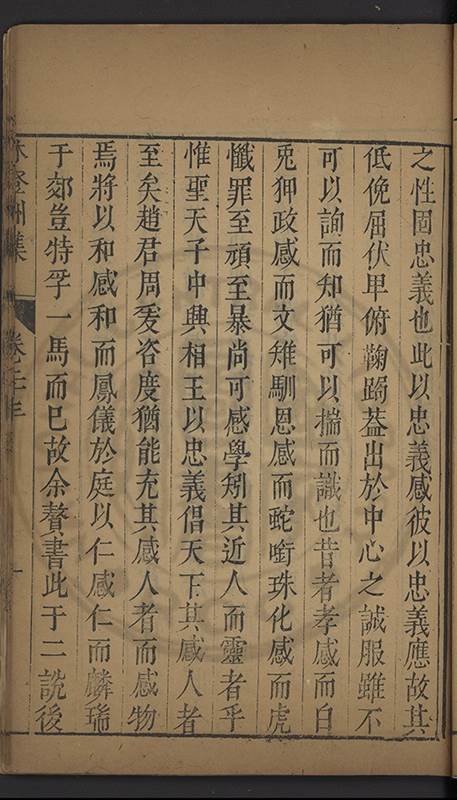 之性固忠義也此以忠義感彼以忠義應故其
低俛屈伏卑俯鞠跼葢出於中心之誠服雖不
可以詢而知猶可以揣而識也昔者孝感而白
兎狎政感而文雉馴恩感而蛇銜珠化感而虎
懺罪至頑至暴尚可感學矧其近人而靈者乎
惟聖天子中興相王以忠義倡天下其感人者
至矣趙君周爰咨度猶能充其感人者而感物
焉將以和感和而鳳儀於庭以仁感仁而麟瑞
于郊豈特孚一馬而已故余聱書此于二說後
林登州集 卷二十